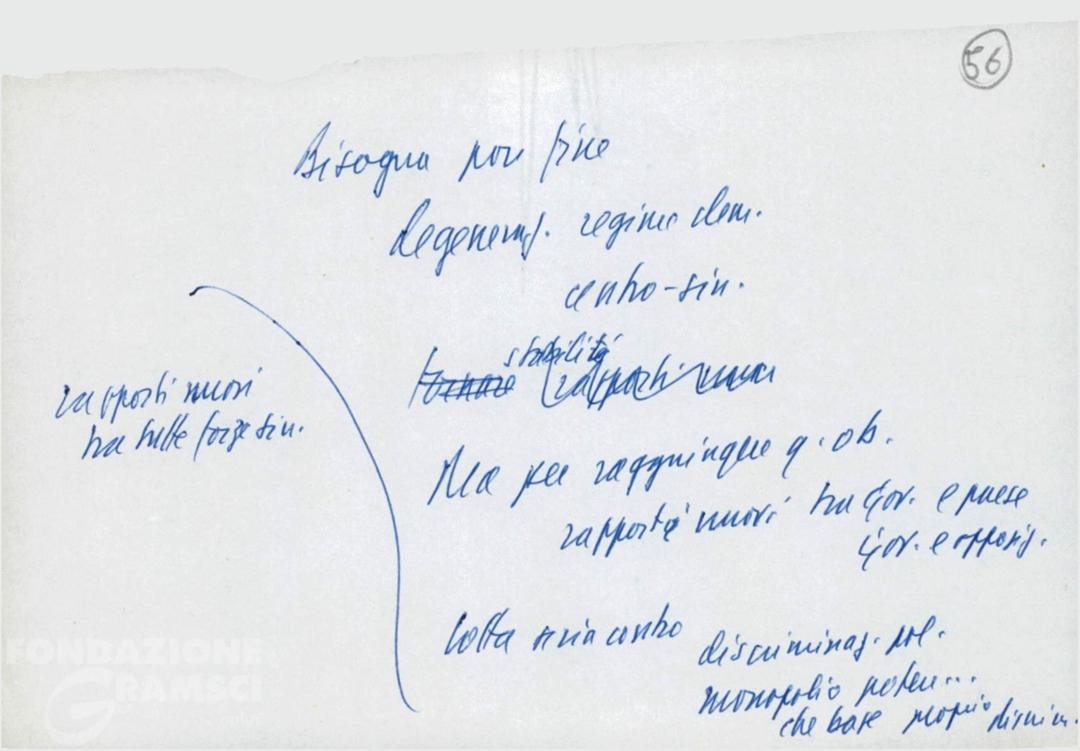 56
Bisogna porre fine
degeneraz. regime dem.
centro-sin.
stabilità
tornare rapporti nuovi
rapporti nuovi
tra tutte forze sin.
Ma per raggiungere q. ob.
rapporti nuovi tra gov. e paese
gov. e opposiz.
lotta seria contro
discriminaz. pol.
monopolio potere...
che base proprio discrim.
FONDAZIONE
GRAMSCI